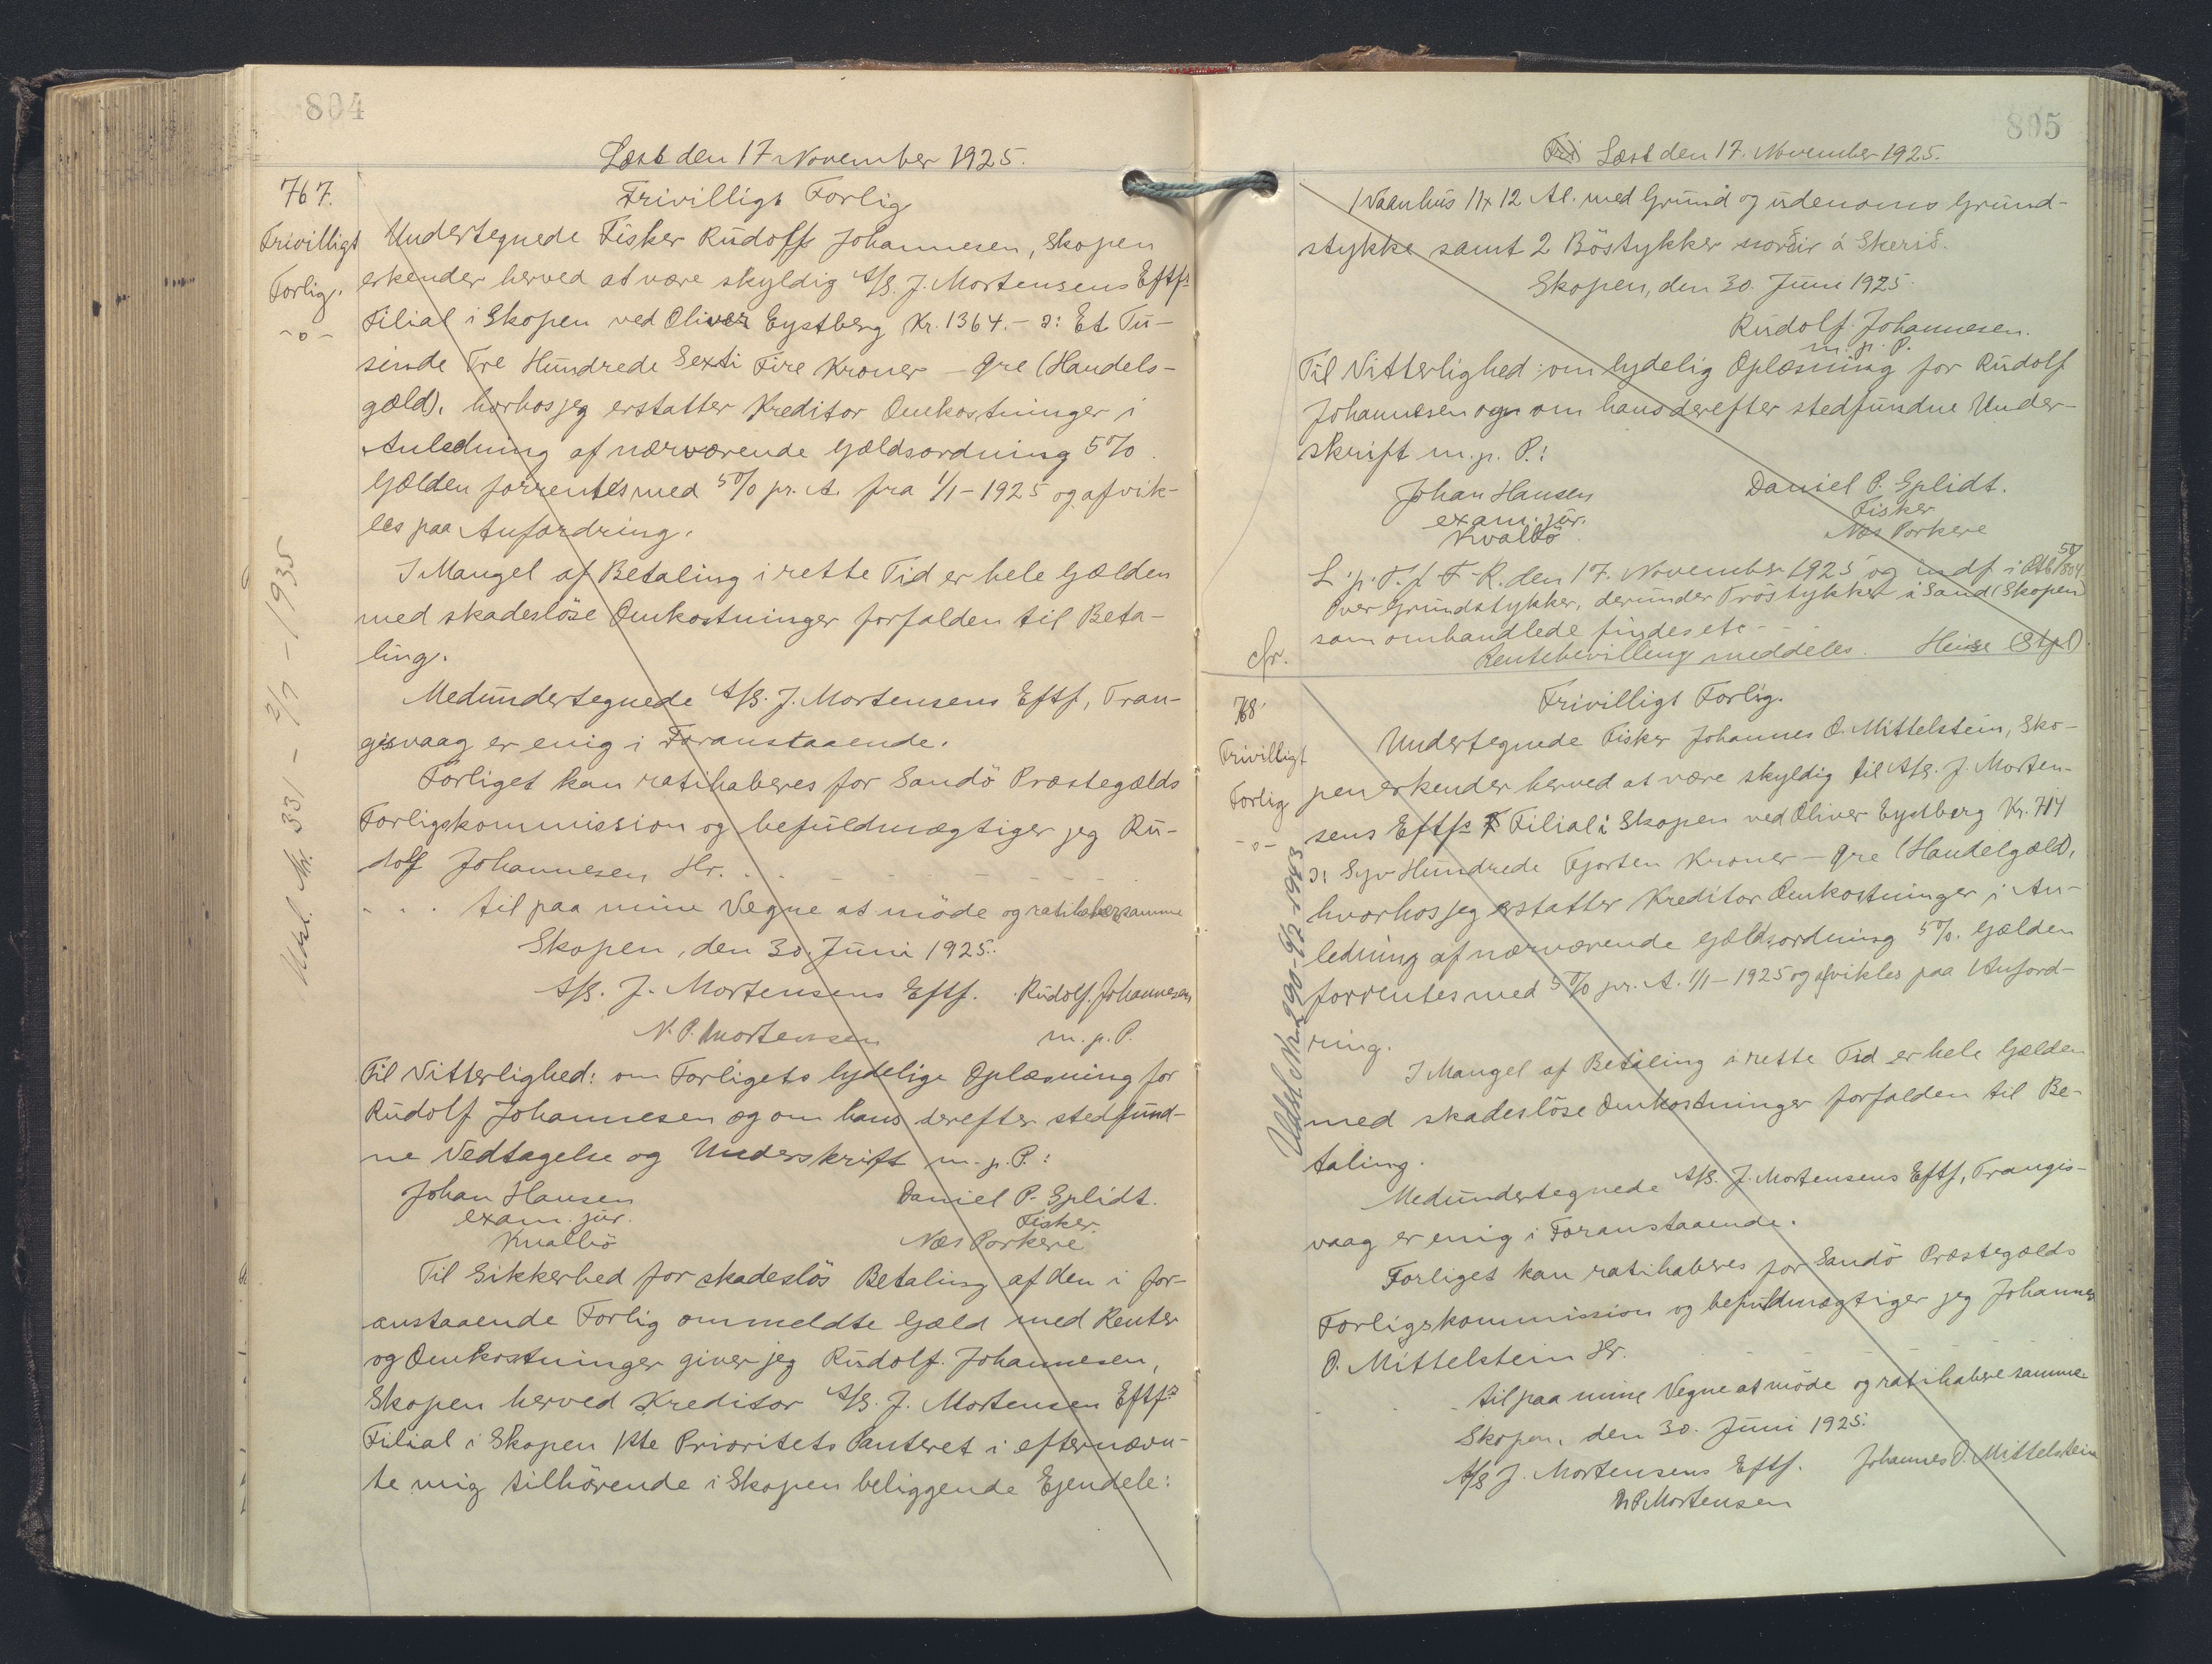 804
Læst den 17 November 1925.
767.
Frivilligt
Forlig.
-o-
Frivilligt Forlig
Undertegnede Fisker Rudolf Johannesen, Skopen
erkender herved at være skyldig A/S. J. Mortensens Eftfs
Filial i Skopen ved Oliver Eystberg Kr. 1364.- ɔ: Et Tu-
sinde Tre Hundrede Sexti Fire Kroner - Øre (Handels-
gæld), hvorhos jeg erstatter Kreditor Omkostninger i
Anledning af nærværende Gældsordning 5%.
Gælden forrentes med 5% pr. A. fra 1/1-1925 og afvik-
les paa Anfordring.
I Mangel af Betaling i rette Tid er hele Gælden
med skadeslöse Omkostninger forfalden til Beta-
ling.
Medundertegnede A/S. J. Mortensens Eftf, Tran-
gisvaag er enig i Foranstaaende.
Forliget kan ratihaberes for Sandö Præstegælds
Forligskommission og befuldmægtiger jeg Ru-
dolf Johannesen Hr. . . - - - - - -
. . . til paa mine Vegne at möde og ratihabere samme
Skopen, den 30. Juni 1925.
A/S. J. Mortensens Eftf. Rudolf. Johannesen
N. P. Mortensen m. p. P.
Til Vitterlighed: om Forligets lydelige Oplæsning for
Rudolf Johannesen og om hans derefter stedfund-
ne Vedtagelse og Underskrift m. p. P.:
Johan Hansen Daniel P. Splidt.
exam. jur. Fisker
Kvalbö Næs Porkere
Til Sikkerhed for skadeslös Betaling af den i for-
anstaaende Forlig ommeldte Gæld med Renter
og Omkostninger giver jeg Rudolf. Johannesen,
Skopen herved Kreditor A/S. J. Mortensen Eftfs
Filial i Skopen 1ste Prioritets Panteret i efternævn-
te mig tilhörende i Skopen beliggende Ejendele:
Udsl. Nr. 331 - 2/7 - 1935
805
Læst den 17. November 1925.
1 Vaanhus 11x12 Al. med Grund og udenoms Grund-
stykke samt 2 Böstykker norðir á Skerið.
Skopen, den 30. Juni 1925.
Rudolf. Johannesen.
m. p. P.
Til Vitterlighed: om lydelig Oplæsning for Rudolf
Johannesen og om hans derefter stedfundne Under-
skrift m. p. P.:
Johan Hansen Daniel P. Splidt.
exam. jur. Fisker
Kvalbö Næs Porkere
L. p. T. f. F. R. den 17. November 1925 og indf i
Over Grundstykker, derunder Tröstykket i Sand (Skopen)
som omhandlede findes etc - -
cfr. Rentebevilling meddeles. Heise (Stpl)
768.
Frivilligt
Forlig
-o-
Frivilligt Forlig.
Undertegnede Fisker Johannes O. Mittelstein, Sko-
pen erkender herved at være skyldig til A/S. J. Morten-
sens Eftfs Filial i Skopen ved Oliver Eystberg Kr. 714
ɔ: Syv Hundrede Fjorten Kroner - Øre (Handelgæld),
hvorhos jeg erstatter Kreditor Omkostninger i An-
ledning af nærværende Gældsordning 5%. Gælden
forrentes med 5% pr. A. 1/1-1925 og afvikles paa Anford-
ring.
I Mangel af Betaling i rette Tid er hele Gælden
med skadeslöse Omkostninger forfalden til Be-
taling.
Medundertegnede A/S. J. Mortensens Eftf, Trangis-
vaag er enig i Foranstaaende.
Forliget kan ratihaberes for Sandö Præstegælds
Forligskommission og befuldmægtiger jeg Johannes
O. Mittelstein Hr.
til paa mine Vegne at möde og ratihabere samme
Skopen, den 30. Juni 1925.
A/S J. Mortensens Eftf. Johannes O. Mittelstein
N P Mortensen
Udsl. Nr. 290-